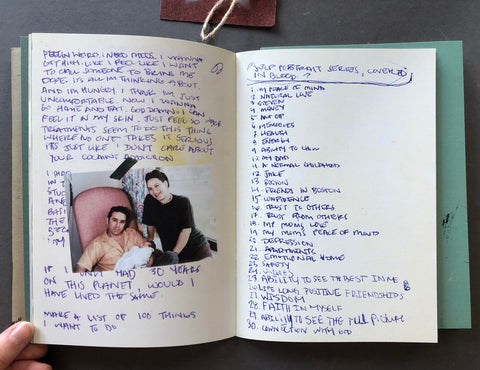 FEELIN WEIRD. I NEED MEDS. I WANNA
GET HIGH. LIKE I FEEL LIKE I WANT
TO CALL SOMEONE TO BRING ME
DOPE. ITS ALL IM THINKING ABOUT.
AND IM HUNGRY I THINK IM JUST
UNCOMFORTABLE. NOW I WANNA
GO HOME AND EAT. GOD DAMN. I CAN
FEEL IT IN MY SKIN. JUST FEEL SO
TREATMENTS SEEM TO DO THIS THING
WHERE NO ONE TAKES IT SERIOUS.
ITS JUST LIKE I DON'T CARE ABOUT
YOUR COCAINE ADDICTION
IF I ONLY HAD 30 YEARS
ON THIS PLANET, WOULD I
HAVE LIVED THE SAME.
MAKE A LIST OF 100 THINGS
I WANT TO DO
SELF PORTRAIT SERIES, COVERED
IN BLOOD?
1. MY PEACE OF MIND
2. NATURAL LOVE
3. STEVEN
4. MONEY
5.
6. MEMORIES
7. HEALTH
8.
9. ABILITY TO
10. MY DAD
11. A NORMAL CHILDHOOD
12. JAKE
13. BOSTON
14. FRIENDS IN BOSTON
15. CONFIDENCE
16. TRUST TO OTHERS
17. TRUST FROM OTHERS
18. MY MOMS LOVE
19. MY MOM'S PEACE OF MIND
20. DEPRESSION
21.
22. EMOTIONAL HOME
23. SAFETY
24. VALUES
25. ABILITY TO SEE THE BEST IN ME
26. LIFE LONG POSITIVE FRIENDSHIPS
27. WISDOM
28. FAITH IN MYSELF
29. ABILITY TO SEE THE FULL PICTURE
30. CONNECTION WITH GOD